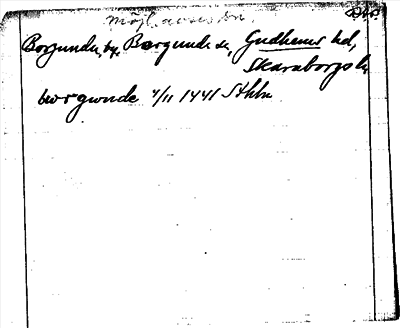 Möjl. avses den
Borgunda by, Borgunda sn, Gudhems hd,
Skaraborgs l.
borgwnde 4/11 1441 Sthlm